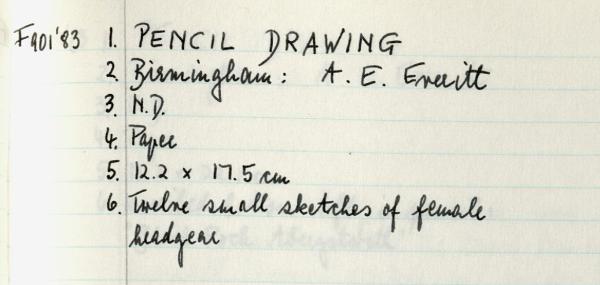 F901'83 1. PENCIL DRAWING
2. Birmingham: A. E. Everitt
3. N.D.
4. Paper
5. 12.2 x 17.5 cm
6. Twelve small sketches of female
headgear